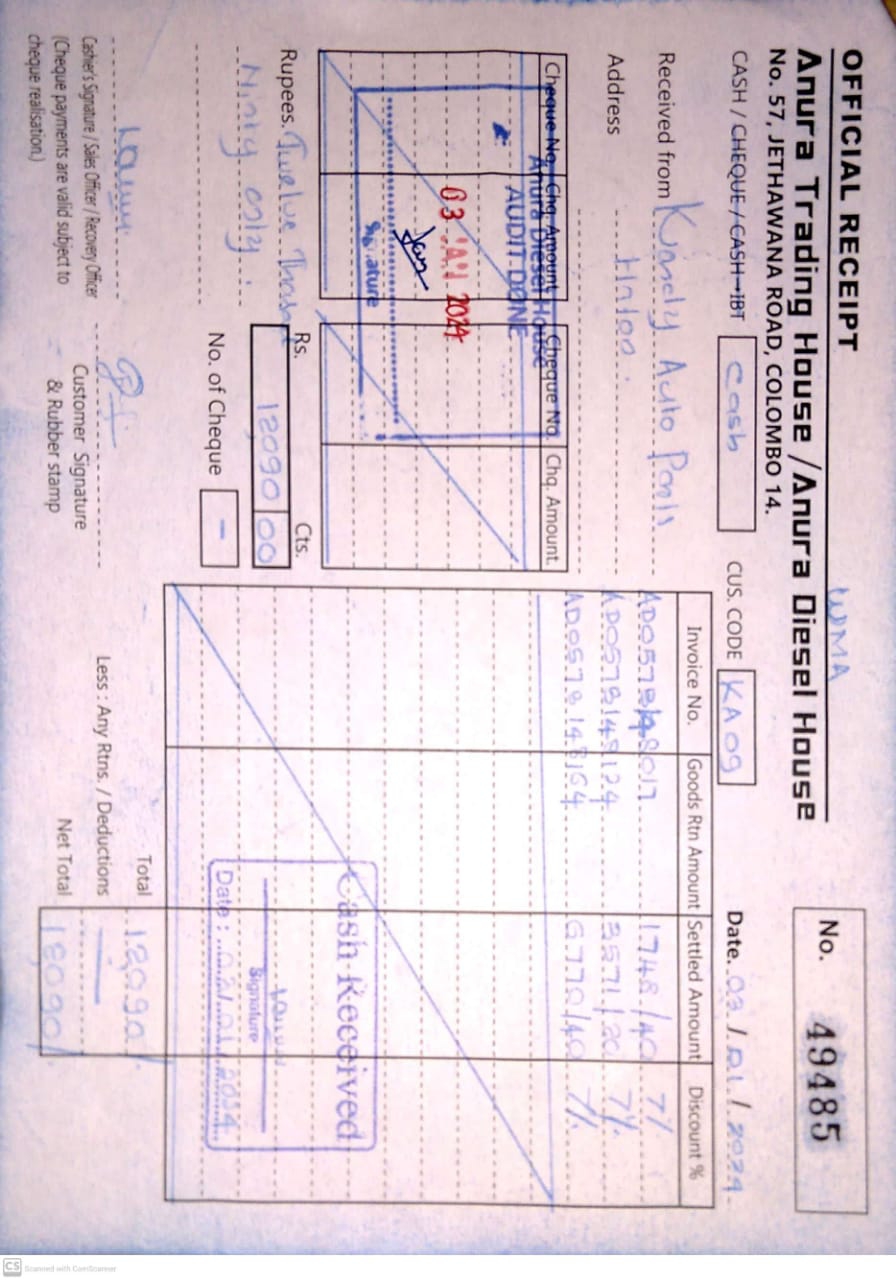 OFFICIAL RECEIPT
WMA
Anura Trading House / Anura Diesel House
No. 57, JETHAWANA ROAD, COLOMBO 14.
No. 49485
CASH / CHEQUE / CASH-IBT Cash
CUS. CODE KA09
Date. 03 / 01 / 2024
Received from Auto
Address
Cheque No. Chq. Amount Cheque No. Chq. Amount.
Anura Diesel House
AUDIT DONE
03 JAN 2024
Signature
Rupees. Twelve
Ninty only.
Rs. Cts.
12090 00
No. of Cheque -
Cashier's Signature / Sales Officer / Recovery Officer
(Cheque payments are valid subject to
cheque realisation.)
Customer Signature
& Rubber stamp
Invoice No. Goods Rtn Amount Settled Amount Discount %
1748/40 7%
AD057B148124 3571/20 7%
AD057B148164 6770/40 7%
Cash Received
Signature
Date : 03/01/2024
Total 12090/
Less : Any Rtns. / Deductions
Net Total
CS Scanned with CamScanner